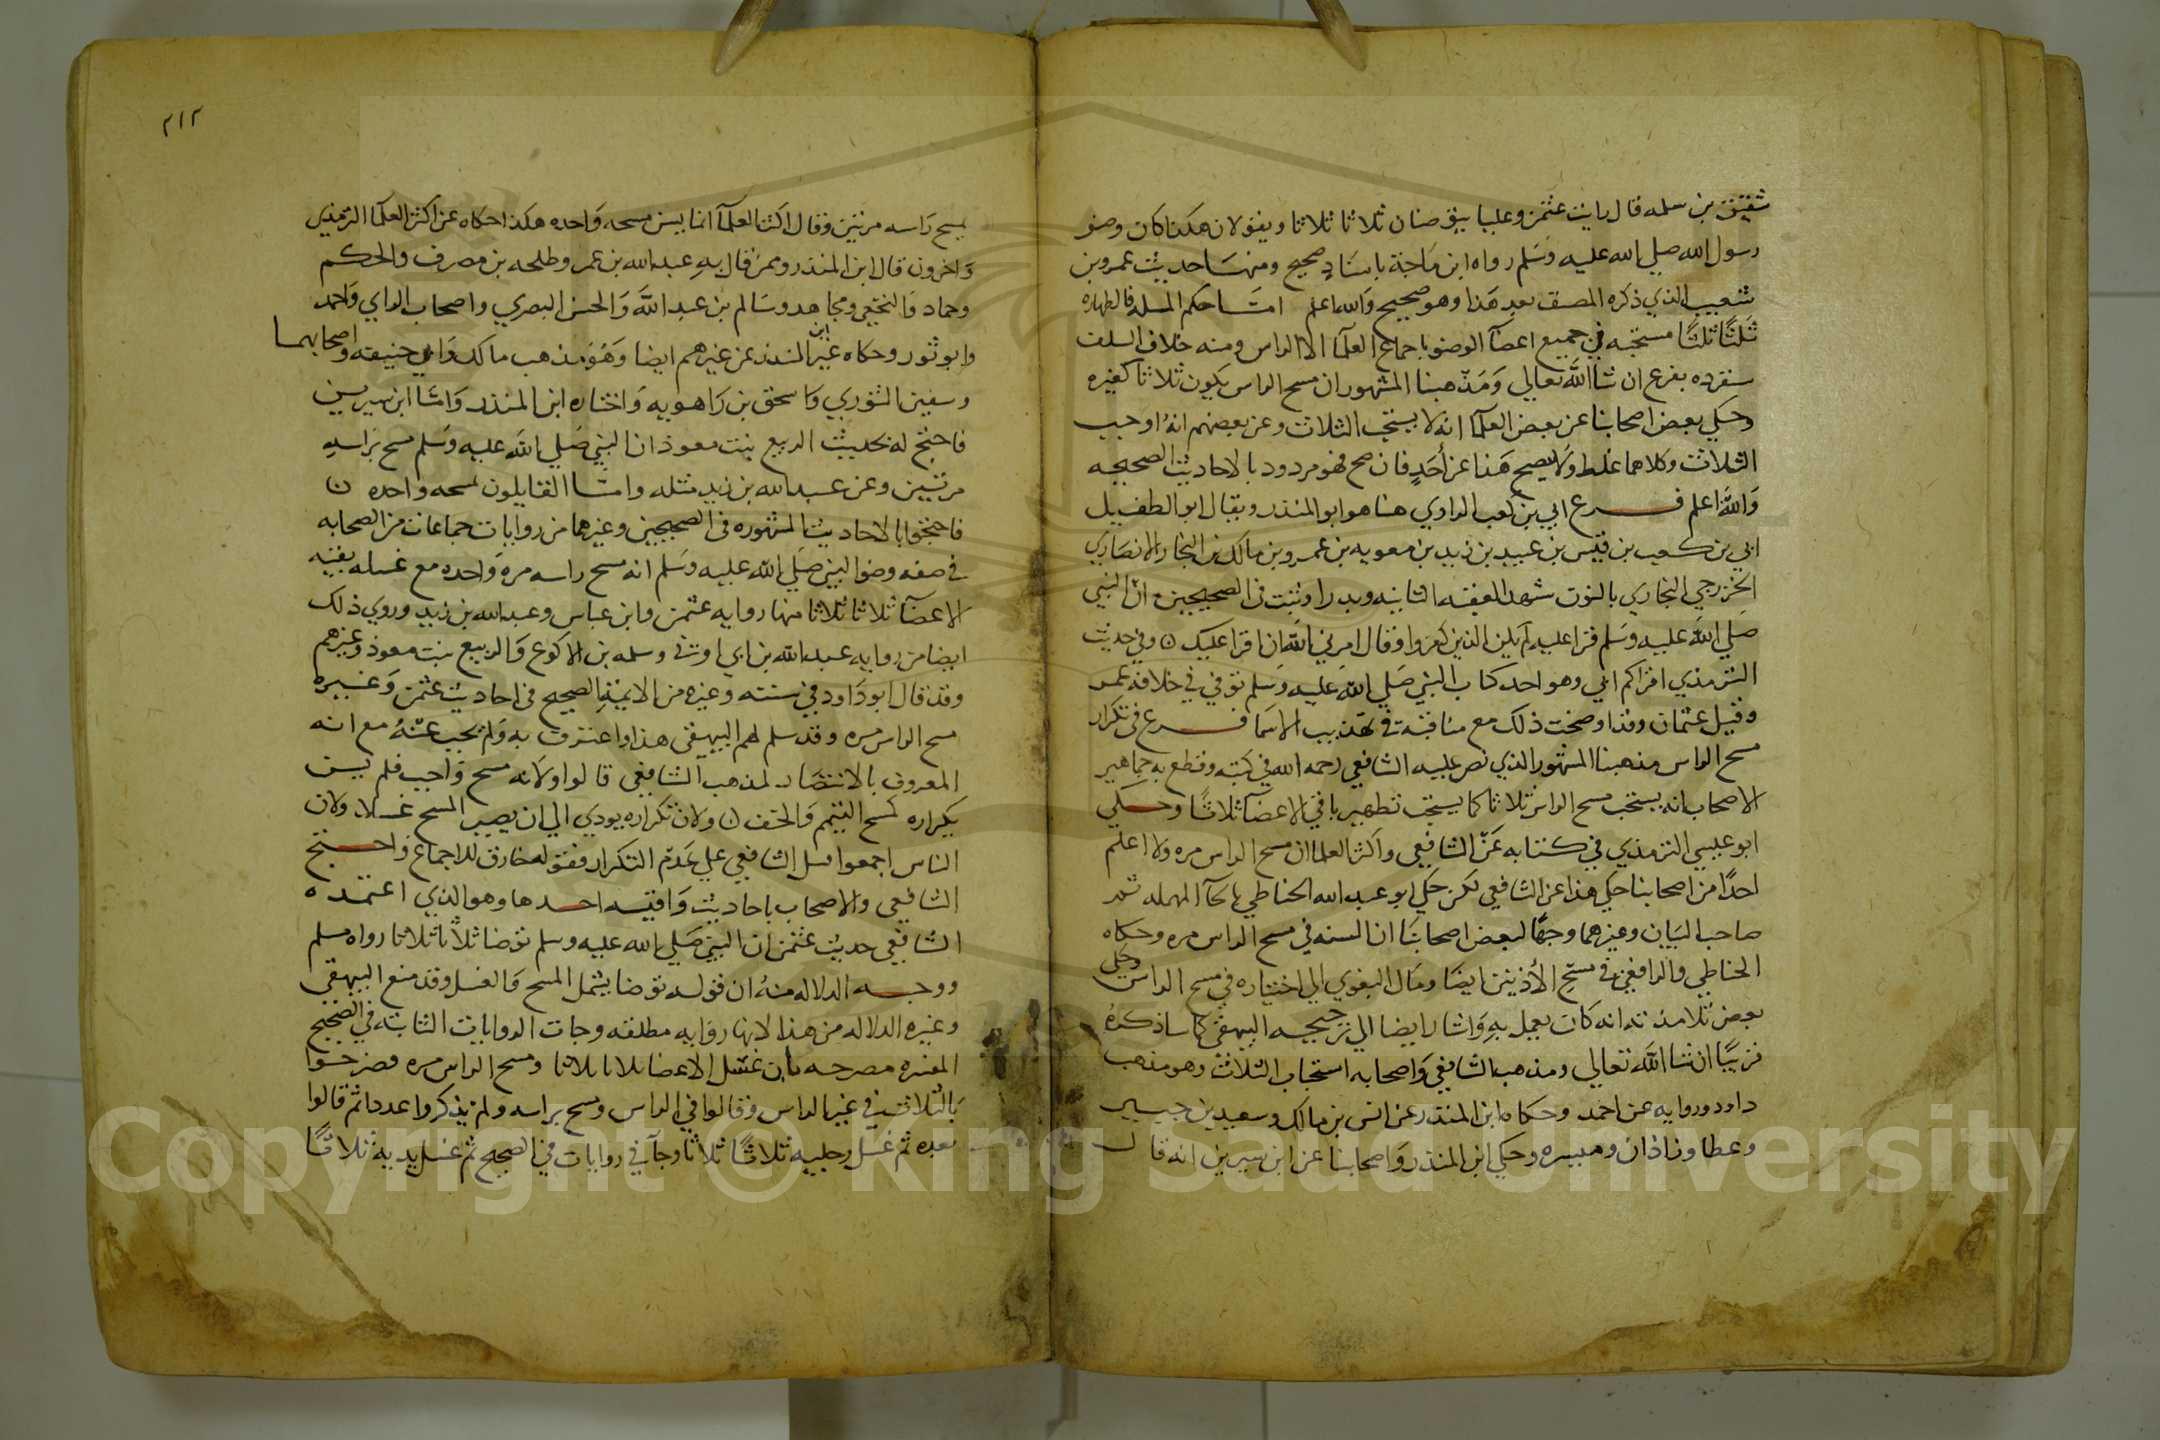 شقيق بن سلمه قال رايت عثمن وعليا يتوضان ثلاثا ثلاثا ويقولان هكذا كان وضو
رسول الله صلي الله عليه وسلم رواه ابن ماجة باسناد صحيح ومنها حديث عمرو بن
شعيب الذي ذكره المصنف بعد هذا وهو صحيح والله اعلم اما حكم المسله فالطهاره
ثلثا ثلثا مستحبه في جميع اعضآ الوضو باجماع العلمآ الا الراس ومنه خلاف للسلف
سنفرده بفرع ان شا الله تعالي ومذهبنا المشهور ان مسح الراس يكون ثلاثا كغيره
وحكي بعض اصحابنا عن بعض العلمآ انه لا يستحب الثلاث وعن بعضهم انه اوجب
الثلاث وكلاهما غلط ولا يصح هذا عن أحد فان صح فهو مردود بالاحاديث الصحيحه
والله اعلم فرع ابي بن كعب الراوي هنا هو ابو المنذر ويقال ابو الطفيل
ابي بن كعب بن قيس بن عبيد بن زيد بن معويه بن عمرو بن مالك بن النجار الانصاري
الخزرجي النجاري بالنون شهد العقبه الثانيه وبدرا وثبت في الصحيحين ان النبي
صلي الله عليه وسلم قرا عليه لم يكن الذين كفروا وقال امرني الله ان اقرا عليك ه وفي حديث
الترمذي اقراكم ابي وهو احد كتاب النبي صلي الله عليه وسلم توفي في خلافه عمر
وقيل عثمان وقد اوضحت ذلك مع مناقبه في تهذيب الاسما فرع في تكرار
مسح الراس مذهبنا المشهور الذي نص عليه الشافعي رحمه الله في كتبه وقطع به جماهير
الاصحاب انه يستحب مسح الراس ثلاثا كما يستحب تطهير باقي الاعضآ ثلاثا وحكي
ابو عيسي الترمذي في كتابه عن الشافعي واكثر العلما ان مسح الراس مره ولا اعلم
احدا من اصحابنا حكي هذا عن الشافعي لكن حكي ابو عبد الله الحناطي بالحآ المهمله ثم
صاحب البيان وغيرهما وجها لبعض اصحابنا ان السنه في مسح الراس مره وحكاه
الحناطي والرافعي في مسح الأذنين ايضا ومال البغوي الي اختياره في مسح الراس وحكي
بعض تلامذته انه كان يعمل به واشار ايضا الي ترجيحه البيهقي كما ساذكره
قريبا ان شا الله تعالي ومذهب الشافعي واصحابه استحباب الثلاث وهو مذهب
داود وروايه عن احمد وحكاه ابن المنذر عن انس بن مالك وسعيد بن جبير
وعطا وزاذان وميسره وحكي ابن المنذر واصحابنا عن ابن سيرين انه قال
٢١٢
يمسح راسه مرتين وقال اكثر العلمآ انما يسن مسحه واحده هكذا حكاه عن اكثر العلمآ الترمذي
واخرون قال ابن المنذر وممن قال به عبد الله بن عمر وطلحه بن مصرف والحكم
وحماد والنخعي ومجاهد وسالم بن عبد الله والحسن البصري واصحاب الراي واحمد
وابو ثور وحكاه غير ابن المنذر عن غيرهم ايضا وهو مذهب مالك وابي حنيفه واصحابهما
وسفين الثوري واسحق بن راهويه واختاره ابن المنذر واما ابن سيرين
فاحتج له بحديث الربيع بنت معوذ ان النبي صلي الله عليه وسلم مسح براسه
مرتين وعن عبد الله بن زيد مثله واما القايلون لمسحه واحده ه
فاحتجوا بالاحاديث المشهوره في الصحيحين وغيرهما من روايات جماعات من الصحابه
في صفه وضو النبي صلي الله عليه وسلم انه مسح راسه مره واحده مع غسله بقيه
الاعضآ ثلاثا ثلاثا منها روايه عثمن وابن عباس وعبد الله بن زيد وروي ذلك
ايضا من روايه عبد الله بن ابي اوفي وسلمه بن الاكوع والربيع بنت معوذ وغيرهم
وقد قال ابو داود في سننه وغيره من الايمة الصحيح في احاديث عثمن وغيره
مسح الراس مره وقد سلم لهم البيهقي هذا واعترف به ولم يجب عنه مع انه
المعروف بالانتصار لمذهب الشافعي قالوا ولانه مسح واجب فلم يسن
تكراره كمسح التيمم والخف ه ولان تكراره يودي الي ان يصير المسح غسلا ولان
الناس اجمعوا قبل الشافعي علي عدم التكرار فقوله خارق للاجماع واحتج
الشافعي والاصحاب باحاديث واقيسه احدها وهو الذي اعتمده
الشافعي حديث عثمن ان النبي صلي الله عليه وسلم توضا ثلاثا ثلاثا رواه مسلم
ووجه الدلاله منه ان قوله توضا يشمل المسح والغسل وقد منع البيهقي
وغيره الدلاله من هذا لانها روايه مطلقه وجات الروايات الثابته في الصحيح
المفسره مصرحه بان غسل الاعضا ثلاثا ثلاثا ومسح الراس مره فصرحوا
بالثلاث في غير الراس وقالوا في الراس ومسح براسه ولم يذكروا عددا ثم قالوا
بعده ثم غسل رجليه ثلاثا ثلاثا وجآ في روايات في الصحيح ثم غسل يديه ثلاثا
Copyright © King Saud University